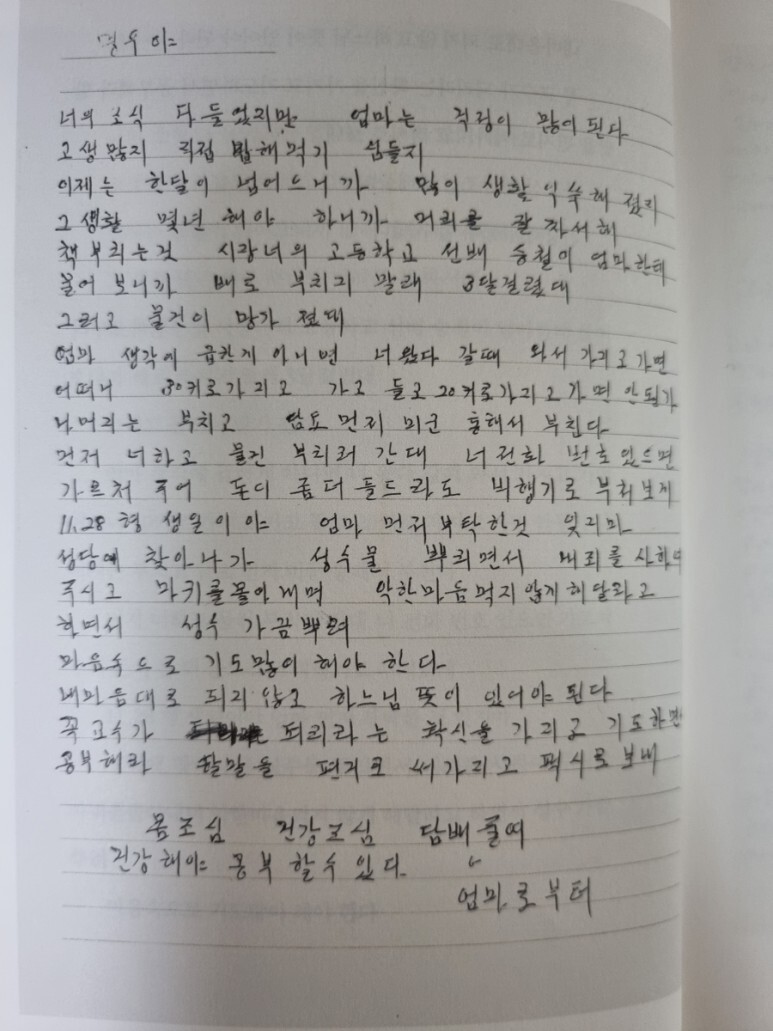 너의 소식 다 들었지만 엄마는 걱정이 많이 된다
고생많지 직접 밥해먹기 힘들지
이제는 한달이 넘어으니까 많이 생활 익숙해 졌지
그 생활 몇년 해야 하니까 머리를 잘 자서해
책 부치는것 시장너의 고등학교 선배 승철이 엄마한테
물어 보니까 배로 부치지 말래 3달걸렸대
그러고 물건이 망가 졌때
엄마 생각에 급한게 아니면 너왔다 갈때 와서 가지고가면
어떠니 30키로가지고 가고 들고 20키로가지고가면 안될가
나머지는 부치고 담요먼저 미군 통해서 부친다
먼저 너하고 물건 부치러 간대 너전화 번호 있으면
가르처 주어 돈이 좀더 들드라도 비행기로 부처보게
11.28 형 생일이야 엄마 먼저부탁한것 잊지마
성당에 찾아나가 성수물 뿌리면서 내죄를 사하여
주시고 마귀를몰아내며 악한마음먹지 않게해달라고
하면서 성수 가끔뿌려
마음속으로 기도많이 해야 한다
내마음대로 되지않고 하느님 뜻이 있어야 된다
꼭교수가 되리라는 확신을 가리고 기도하면
공부해라 할말을 편지로 써가리고 팩시로보내
몸조심 건강조심 담배줄여
건강해야 공부 할수 있다
엄마로부터